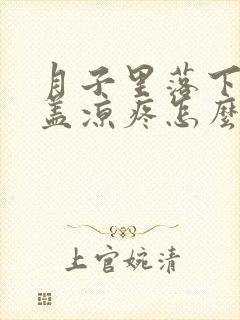 月子里落下
盖凉疼怎麼
上官婉清